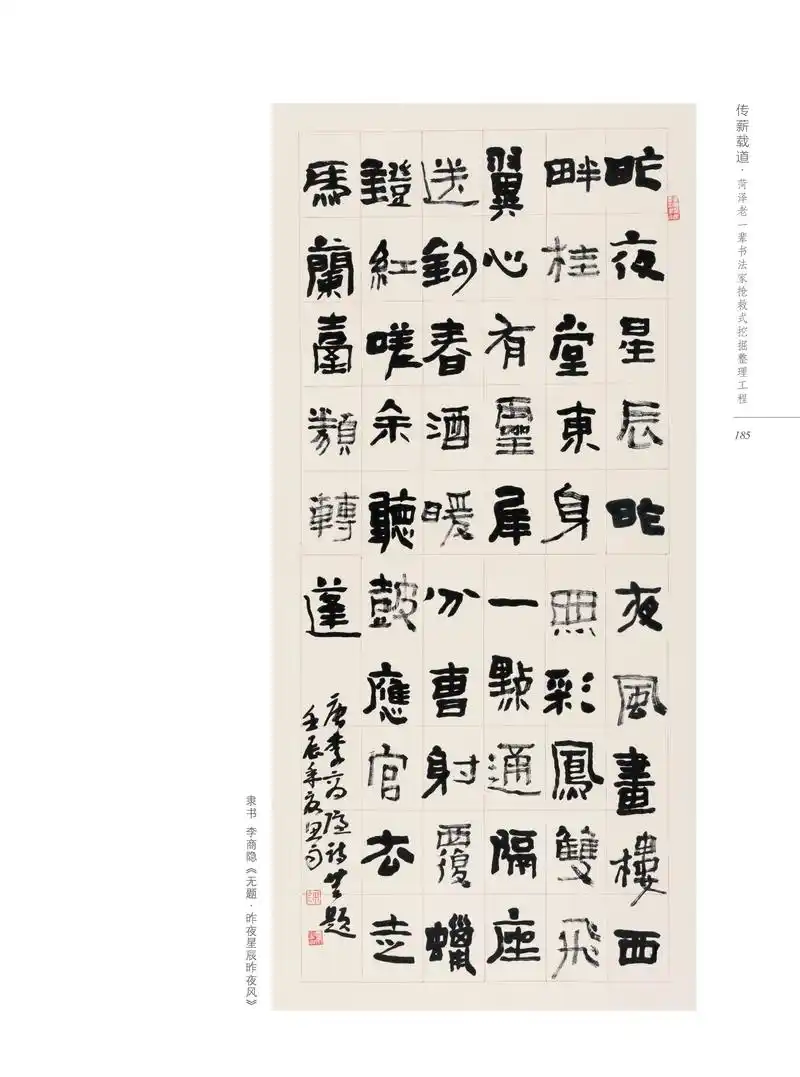 传薪载道·菏泽老一辈书法家抢救式挖掘整理工程
185
昨夜星辰昨夜風畫樓西
畔桂堂東身無彩鳳雙飛
翼心有靈犀一點通隔座
送鉤春酒暖分曹射覆蠟
鐙紅嗟余聽鼓應官去走
馬蘭臺類轉蓬
唐李商隱詩無題
壬辰年夏
隶书 李商隐《无题·昨夜星辰昨夜风》